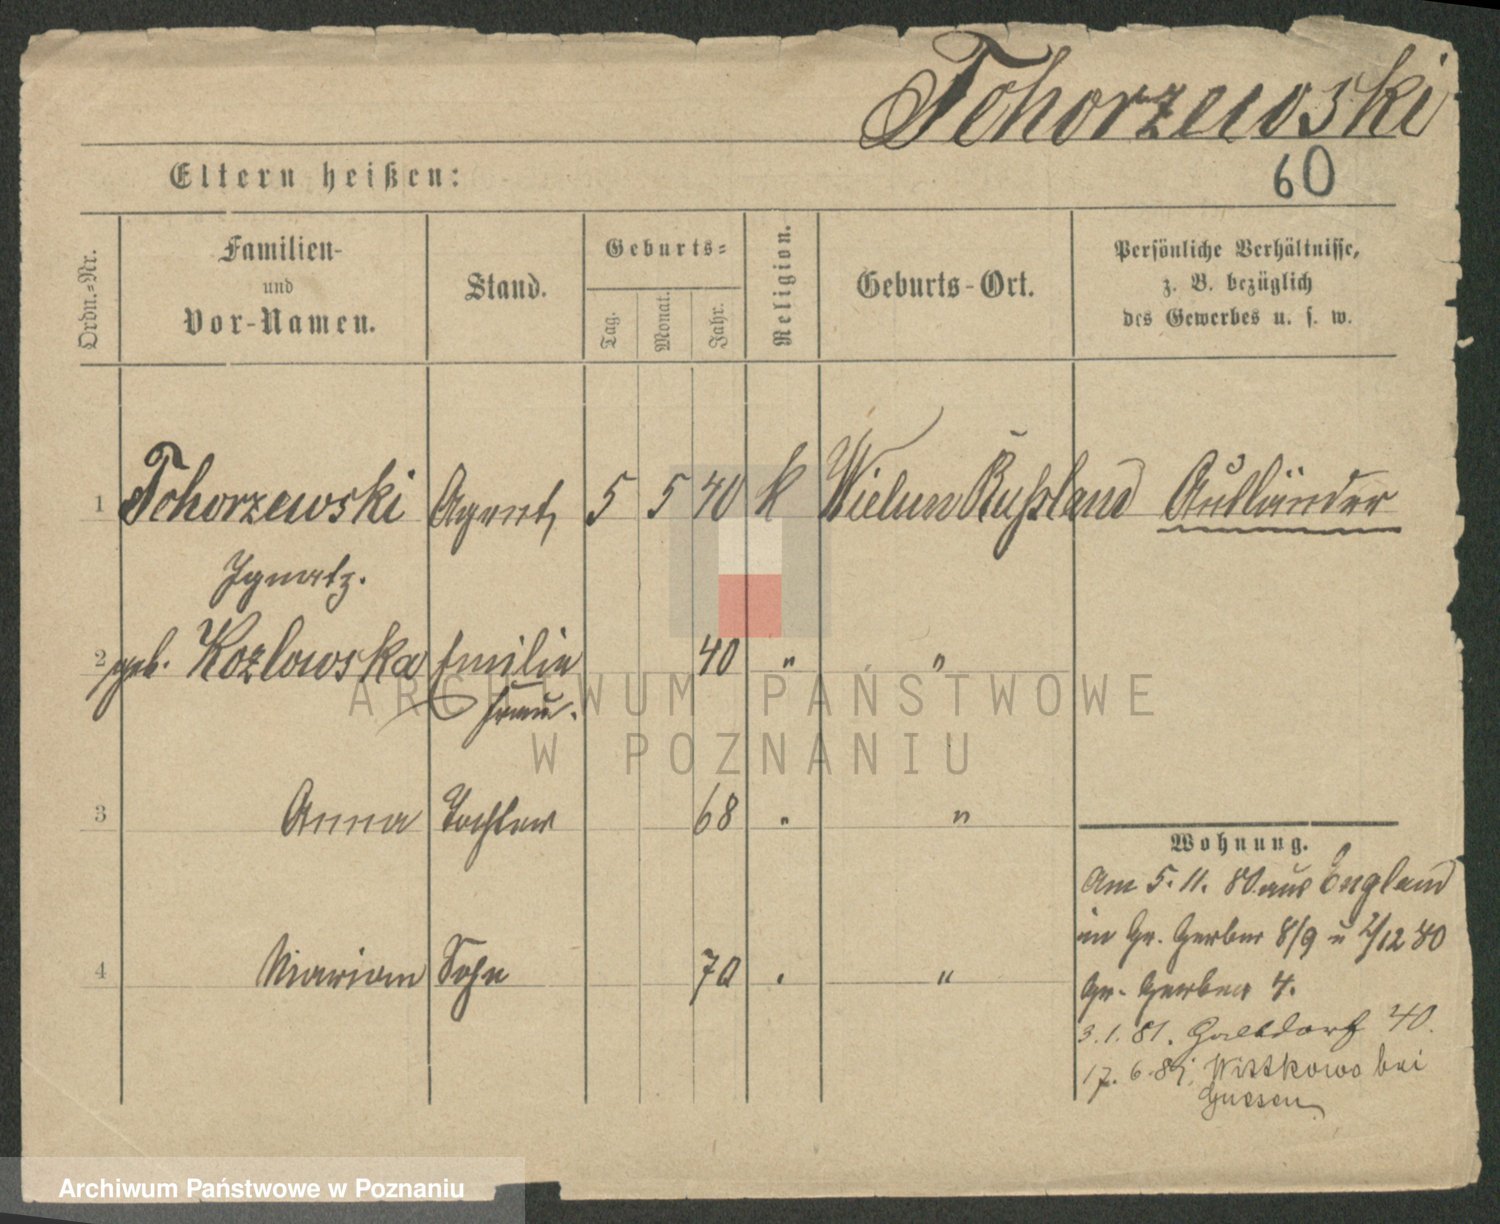 Tchorzewski
60
Eltern heißen:
Ordn.-Nr.
Familien-
und
Vor-Namen.
Stand.
Geburts-
Tag.
Monat.
Jahr.
Religion.
Geburts-Ort.
Persönliche Verhältnisse,
z. B. bezüglich
des Gewerbes u. s. w.
1 Tchorzewski Agent, 5 5 40 k Wielun Rußland Ausländer
Ignatz.
2 geb. Kozlowska Emilie 40 " "
Frau.
ARCHIWUM PAŃSTWOWE
W POZNANIU
3 Anna Tochter 68 " "
Wohnung.
Am 5. 11. 80 aus England
in Gr. Gerber 8/9 u 2/12 80
4 Marian Sohn 70 " "
Gr. Gerber 4.
3. 1. 81. 40.
17. 6. Wittkowo bei
Gnesen
Archiwum Państwowe w Poznaniu